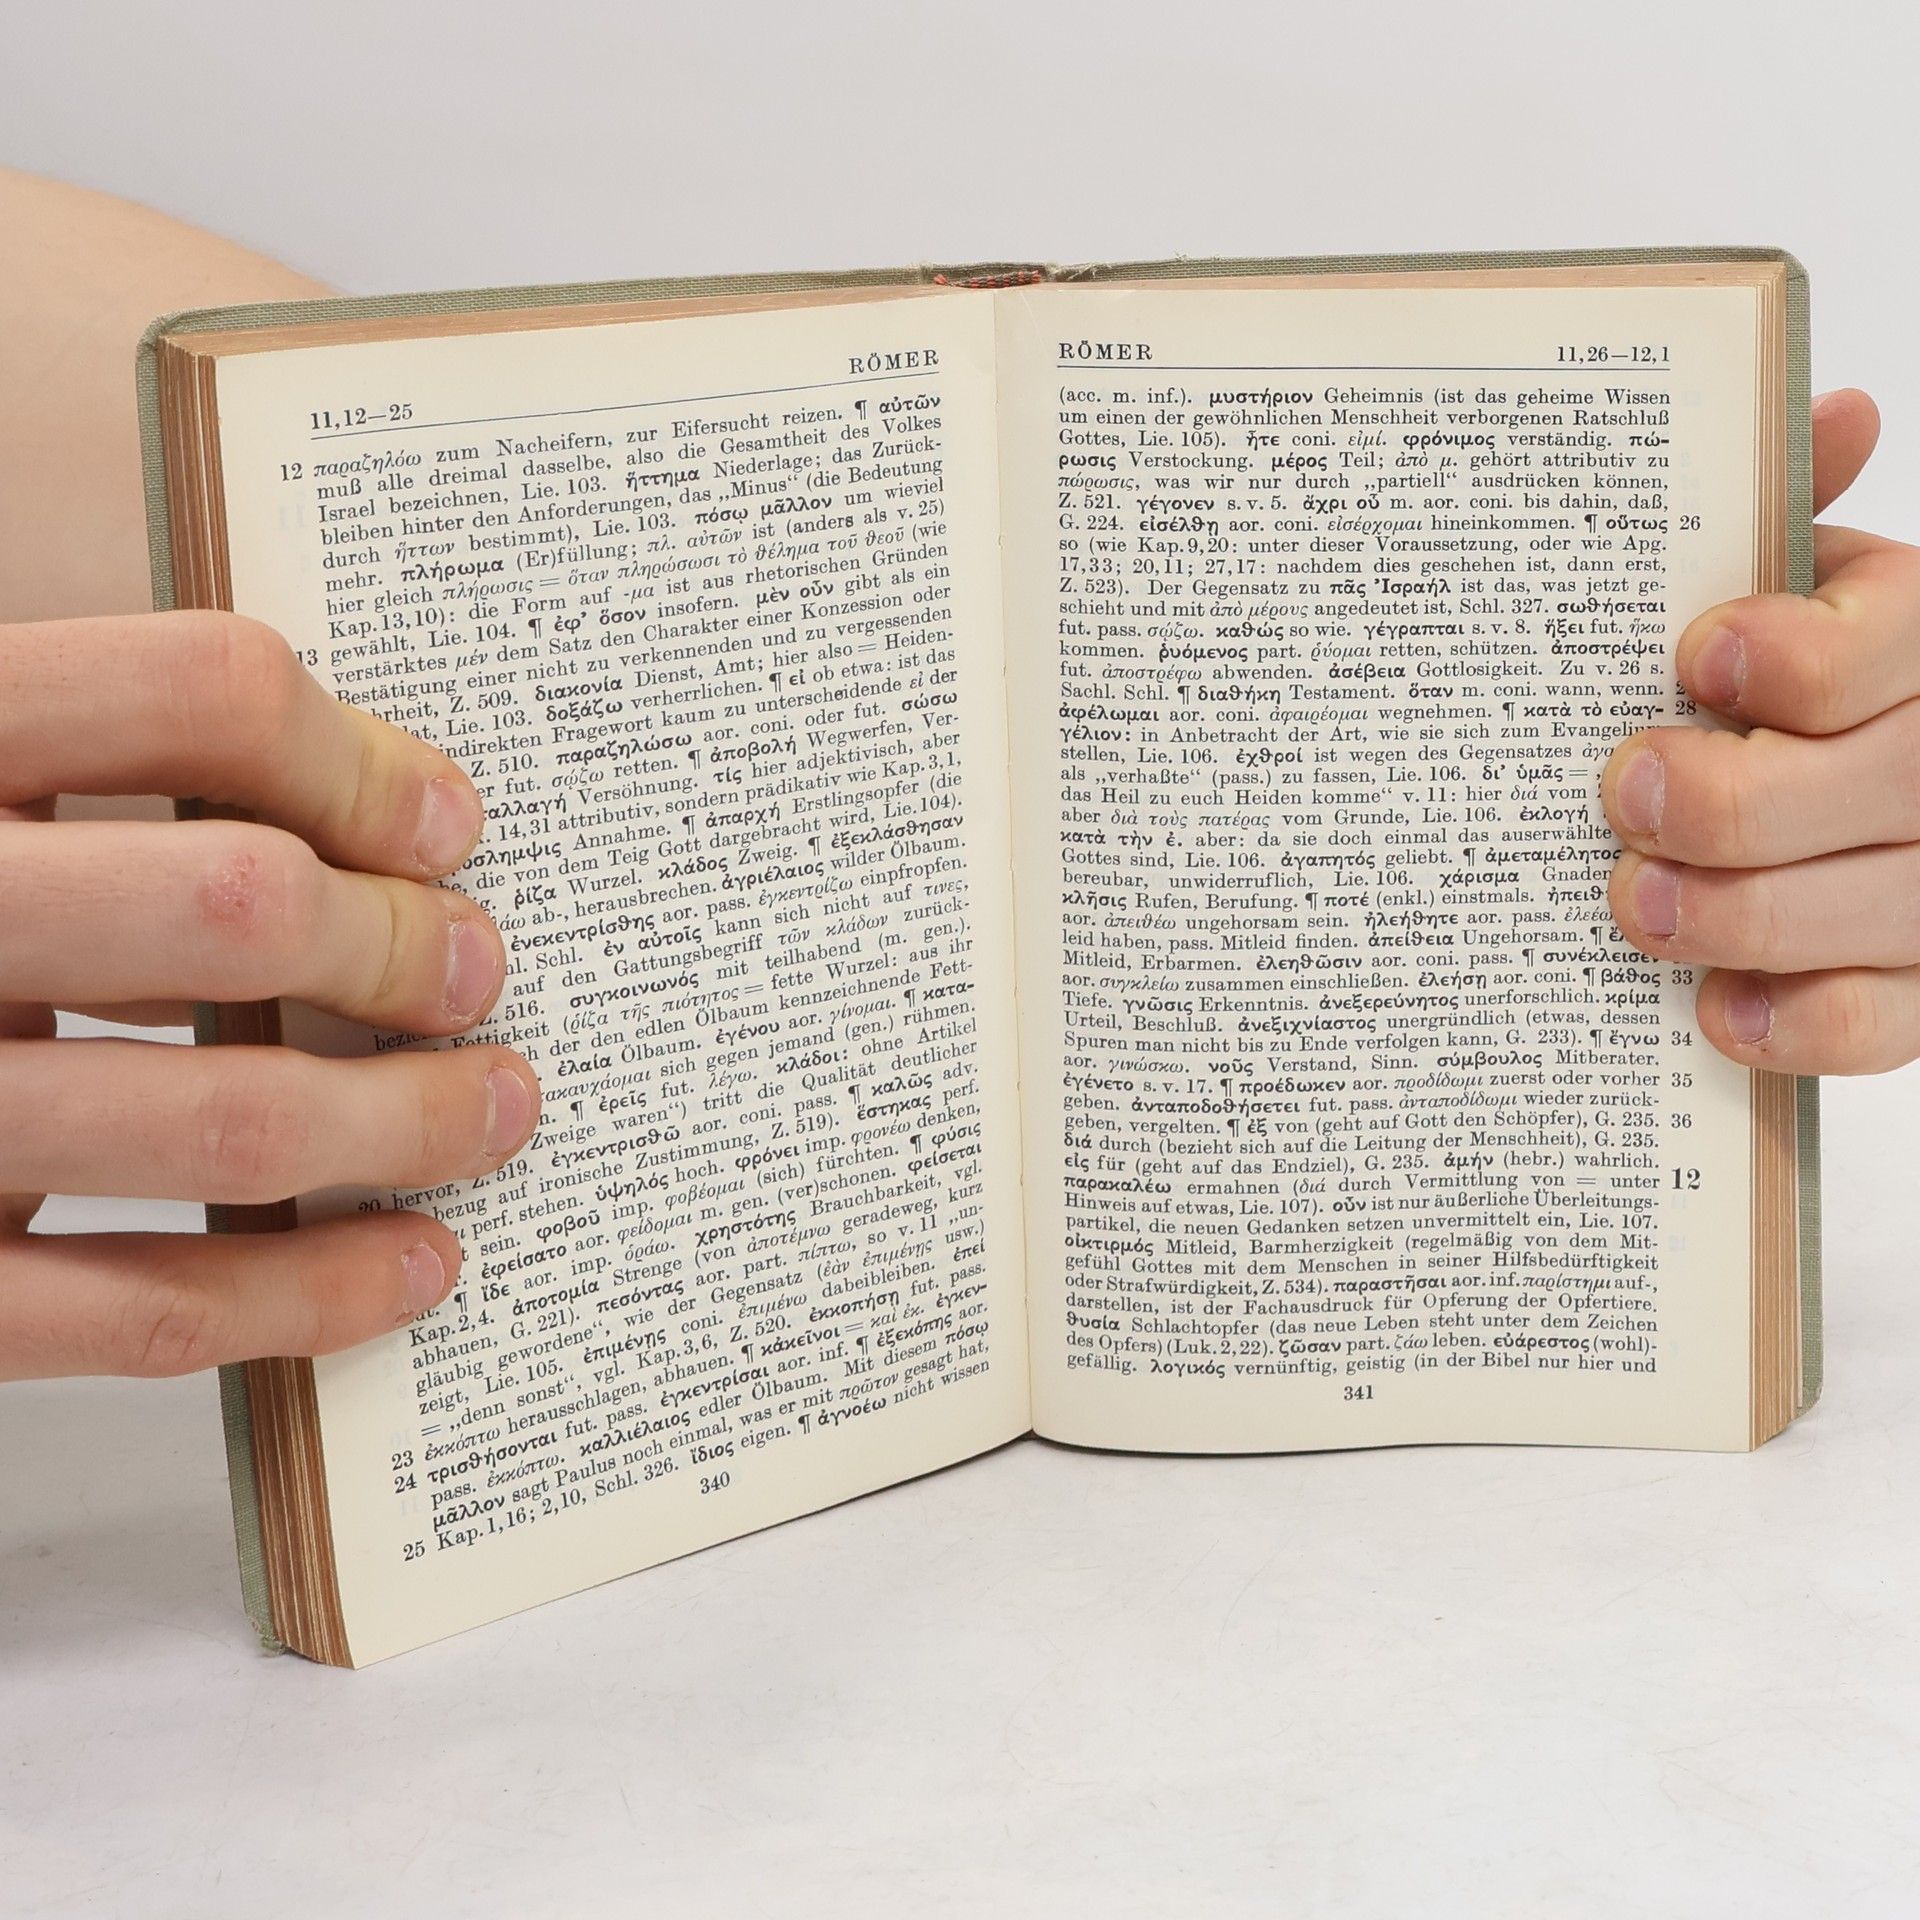 11,12—25
RÖMER
12 παραζηλόω zum Nacheifern, zur Eifersucht reizen. ¶ αὐτῶν
muß alle dreimal dasselbe, also die Gesamtheit des Volkes
Israel bezeichnen, Lie. 103. ἥττημα Niederlage; das Zurück-
bleiben hinter den Anforderungen, das „Minus“ (die Bedeutung
durch ἥττων bestimmt), Lie. 103. πόσῳ μᾶλλον um wieviel
mehr. πλήρωμα (Er)füllung; πλ. αὐτῶν ist (anders als v. 25)
hier gleich πλήρωσις = ὅταν πληρώσωσι τὸ θέλημα τοῦ θεοῦ (wie
Kap. 13,10): die Form auf -μα ist aus rhetorischen Gründen
13 gewählt, Lie. 104. ¶ ἐφ’ ὅσον insofern. μὲν οὖν gibt als ein
verstärktes μέν dem Satz den Charakter einer Konzession oder
Bestätigung einer nicht zu verkennenden und zu vergessenden
Z. 509. διακονία Dienst, Amt; hier also = Heiden-
Lie. 103. δοξάζω verherrlichen. ¶ εἰ ob etwa: ist das
indirekten Fragewort kaum zu unterscheidende εἰ der
Z. 510. παραζηλώσω aor. coni. oder fut. σώσω
fut. σῴζω retten. ¶ ἀποβολή Wegwerfen, Ver-
Versöhnung. τίς hier adjektivisch, aber
14,31 attributiv, sondern prädikativ wie Kap. 3,1,
Annahme. ¶ ἀπαρχή Erstlingsopfer (die
die von dem Teig Gott dargebracht wird, Lie. 104).
ῥίζα Wurzel. κλάδος Zweig. ¶ ἐξεκλάσθησαν
ab-, herausbrechen. ἀγριέλαιος wilder Ölbaum.
ἐνεκεντρίσθης aor. pass. ἐγκεντρίζω einpfropfen.
Schl. ἐν αὐτοῖς kann sich nicht auf τινες,
auf den Gattungsbegriff τῶν κλάδων zurück-
516. συγκοινωνός mit teilhabend (m. gen.).
Fettigkeit (ῥίζα τῆς πιότητος = fette Wurzel: aus ihr
der den edlen Ölbaum kennzeichnende Fett-
ἐλαία Ölbaum. ἐγένου aor. γίνομαι. ¶ κατα-
sich gegen jemand (gen.) rühmen.
¶ ἐρεῖς fut. λέγω. κλάδοι: ohne Artikel
Zweige waren“) tritt die Qualität deutlicher
20 hervor, Z. 519. ἐγκεντρισθῶ aor. coni. pass. ¶ καλῶς adv.
bezug auf ironische Zustimmung, Z. 519). ἕστηκας perf.
perf. stehen. ὑψηλός hoch. φρόνει imp. φρονέω denken,
sein. φοβοῦ imp. φοβέομαι (sich) fürchten. ¶ φύσις
ἐφείσατο aor. φείδομαι m. gen. (ver)schonen. φείσεται
¶ ἴδε aor. imp. ὁράω. χρηστότης Brauchbarkeit, vgl.
Kap. 2,4. ἀποτομία Strenge (von ἀποτέμνω geradeweg, kurz
abhauen, G. 221). πεσόντας aor. part. πίπτω, so v. 11 „un-
gläubig gewordene“, wie der Gegensatz (ἐὰν ἐπιμένῃς usw.)
zeigt, Lie. 105. ἐπιμένῃς coni. ἐπιμένω dabeibleiben. ἐπεί
= „denn sonst“, vgl. Kap. 3,6, Z. 520. ἐκκοπήσῃ fut. pass.
23 ἐκκόπτω herausschlagen, abhauen. ¶ κἀκεῖνοι = καὶ ἐκ. ἐγκεν-
24 τρισθήσονται fut. pass. ἐγκεντρίσαι aor. inf. ¶ ἐξεκόπης aor.
pass. ἐκκόπτω. καλλιέλαιος edler Ölbaum. Mit diesem πόσῳ
μᾶλλον sagt Paulus noch einmal, was er mit πρῶτον gesagt hat,
25 Kap. 1,16; 2,10, Schl. 326. ἴδιος eigen. ¶ ἀγνοέω nicht wissen
340
RÖMER
11,26—12,1
(acc. m. inf.). μυστήριον Geheimnis (ist das geheime Wissen
um einen der gewöhnlichen Menschheit verborgenen Ratschluß
Gottes, Lie. 105). ἦτε coni. εἰμί. φρόνιμος verständig. πώ-
ρωσις Verstockung. μέρος Teil; ἀπὸ μ. gehört attributiv zu
πώρωσις, was wir nur durch „partiell“ ausdrücken können,
Z. 521. γέγονεν s. v. 5. ἄχρι οὗ m. aor. coni. bis dahin, daß,
G. 224. εἰσέλθῃ aor. coni. εἰσέρχομαι hineinkommen. ¶ οὕτως 26
so (wie Kap. 9,20: unter dieser Voraussetzung, oder wie Apg.
17,33; 20,11; 27,17: nachdem dies geschehen ist, dann erst,
Z. 523). Der Gegensatz zu πᾶς Ἰσραήλ ist das, was jetzt ge-
schieht und mit ἀπὸ μέρους angedeutet ist, Schl. 327. σωθήσεται
fut. pass. σῴζω. καθώς so wie. γέγραπται s. v. 8. ἥξει fut. ἥκω
kommen. ῥυόμενος part. ῥύομαι retten, schützen. ἀποστρέψει
fut. ἀποστρέφω abwenden. ἀσέβεια Gottlosigkeit. Zu v. 26 s.
Sachl. Schl. ¶ διαθήκη Testament. ὅταν m. coni. wann, wenn.
ἀφέλωμαι aor. coni. ἀφαιρέομαι wegnehmen. ¶ κατὰ τὸ εὐαγ- 28
γέλιον: in Anbetracht der Art, wie sie sich zum Evangelium
stellen, Lie. 106. ἐχθροί ist wegen des Gegensatzes
als „verhaßte“ (pass.) zu fassen, Lie. 106. δι’ ὑμᾶς =
das Heil zu euch Heiden komme“ v. 11: hier διά vom
aber διὰ τοὺς πατέρας vom Grunde, Lie. 106. ἐκλογή
κατὰ τὴν ἐ. aber: da sie doch einmal das auserwählte
Gottes sind, Lie. 106. ἀγαπητός geliebt. ¶ ἀμεταμέλητος
bereubar, unwiderruflich, Lie. 106. χάρισμα Gnaden
κλῆσις Rufen, Berufung. ¶ ποτέ (enkl.) einstmals.
aor. ἀπειθέω ungehorsam sein. ἠλεήθητε aor. pass. ἐλεέω
leid haben, pass. Mitleid finden. ἀπείθεια Ungehorsam. ¶
Mitleid, Erbarmen. ἐλεηθῶσιν aor. coni. pass. ¶ συνέκλεισεν
aor. συγκλείω zusammen einschließen. ἐλεήσῃ aor. coni. ¶ βάθος 33
Tiefe. γνῶσις Erkenntnis. ἀνεξερεύνητος unerforschlich. κρίμα
Urteil, Beschluß. ἀνεξιχνίαστος unergründlich (etwas, dessen
Spuren man nicht bis zu Ende verfolgen kann, G. 233). ¶ ἔγνω 34
aor. γινώσκω. νοῦς Verstand, Sinn. σύμβουλος Mitberater.
ἐγένετο s. v. 17. ¶ προέδωκεν aor. προδίδωμι zuerst oder vorher 35
geben. ἀνταποδοθήσετει fut. pass. ἀνταποδίδωμι wieder zurück-
geben, vergelten. ¶ ἐξ von (geht auf Gott den Schöpfer), G. 235. 36
διά durch (bezieht sich auf die Leitung der Menschheit), G. 235.
εἰς für (geht auf das Endziel), G. 235. ἀμήν (hebr.) wahrlich.
παρακαλέω ermahnen (διά durch Vermittlung von = unter 12
Hinweis auf etwas, Lie. 107). οὖν ist nur äußerliche Überleitungs-
partikel, die neuen Gedanken setzen unvermittelt ein, Lie. 107.
οἰκτιρμός Mitleid, Barmherzigkeit (regelmäßig von dem Mit-
gefühl Gottes mit dem Menschen in seiner Hilfsbedürftigkeit
oder Strafwürdigkeit, Z. 534). παραστῆσαι aor. inf. παρίστημι auf-,
darstellen, ist der Fachausdruck für Opferung der Opfertiere.
θυσία Schlachtopfer (das neue Leben steht unter dem Zeichen
des Opfers) (Luk. 2,22). ζῶσαν part. ζάω leben. εὐάρεστος (wohl)-
gefällig. λογικός vernünftig, geistig (in der Bibel nur hier und
341